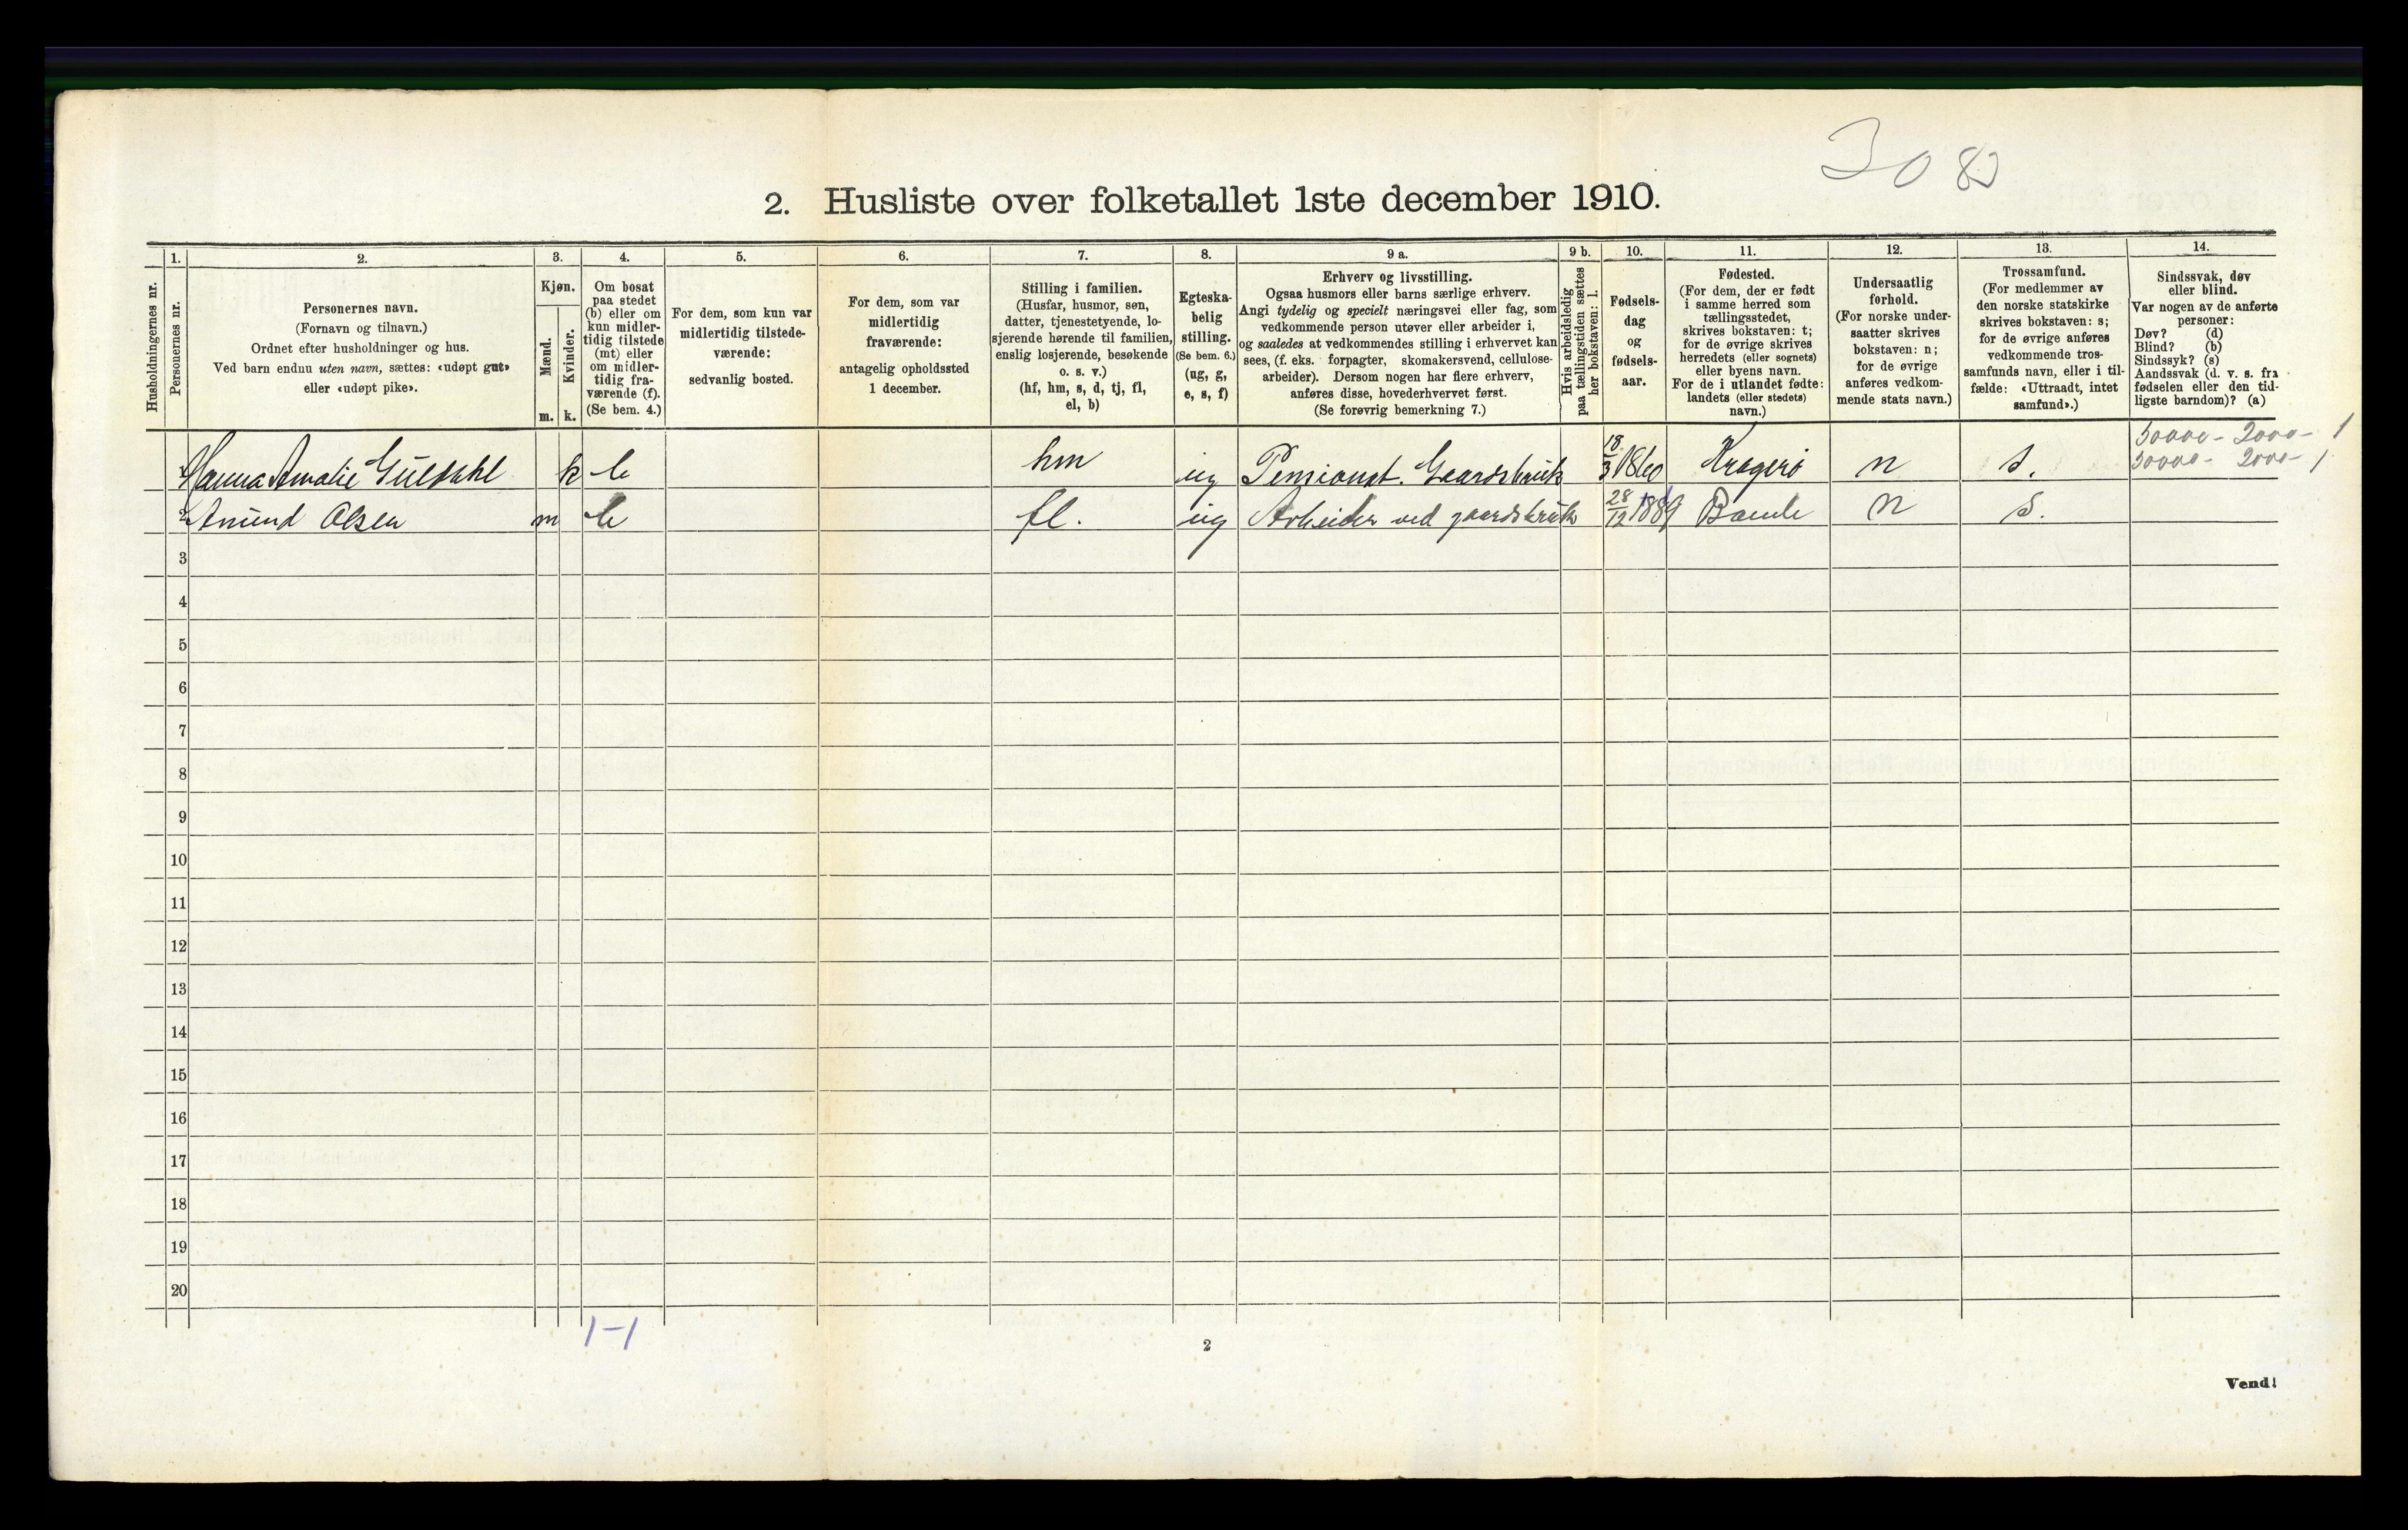 308
2. Husliste over folketallet 1ste december 1910.
Husholdningernes nr.
1.
Personernes nr.
2.
Personernes navn.
(Fornavn og tilnavn.)
Ordnet efter husholdninger og hus.
Ved barn endnu uten navn, sættes: «udøpt gut»
eller «udøpt pike».
3.
Kjøn.
Mænd.
m.
Kvinder.
k.
4.
Om bosat
paa stedet
(b) eller om
kun midler-
tidig tilstede
(mt) eller
om midler-
tidig fra-
værende (f).
(Se bem. 4.)
5.
For dem, som kun var
midlertidig tilstede-
værende:
sedvanlig bosted.
6.
For dem, som var
midlertidig
fraværende:
antagelig opholdssted
1 december.
7.
Stilling i familien.
(Husfar, husmor, søn,
datter, tjenestetyende, lo-
sjerende hørende til familien,
enslig losjerende, besøkende
o. s. v.)
(hf, hm, s, d, tj, fl,
el, b)
8.
Egteska-
belig
stilling.
(Se bem. 6.)
(ug, g,
e, s, f)
9 a.
Erhverv og livsstilling.
Ogsaa husmors eller barns særlige erhverv.
Angi tydelig og specielt næringsvei eller fag, som
vedkommende person utøver eller arbeider i,
og saaledes at vedkommendes stilling i erhvervet kan
sees, (f. eks. forpagter, skomakersvend, cellulose-
arbeider). Dersom nogen har flere erhverv,
anføres disse, hovederhvervet først.
(Se forøvrig bemerkning 7.)
9 b.
Hvis arbeidsledig
paa tællingstiden sættes
her bokstaven: l.
10.
Fødsels-
dag
og
fødsels-
aar.
11.
Fødested.
(For dem, der er født
i samme herred som
tællingsstedet,
skrives bokstaven: t;
for de øvrige skrives
herredets (eller sognets)
eller byens navn.
For de i utlandet fødte:
landets (eller stedets)
navn.)
12.
Undersaatlig
forhold.
(For norske under-
saatter skrives
bokstaven: n;
for de øvrige
anføres vedkom-
mende stats navn.)
13.
Trossamfund.
(For medlemmer av
den norske statskirke
skrives bokstaven: s;
for de øvrige anføres
vedkommende tros-
samfunds navn, eller i til-
fælde: «Uttraadt, intet
samfund».)
14.
Sindssvak, døv
eller blind.
Var nogen av de anførte
personer:
Døv? (d)
Blind? (b)
Sindssyk? (s)
Aandssvak (d. v. s. fra
fødselen eller den tid-
ligste barndom)? (a)
50000 - 2000 - 1
1 Hanna Amalie Guldahl k b hm ug Pensionat. Gaardsbruk 18/3 1860 Kragerø n s. 30000 - 2000 - 1
2 Amund Olsen m b fl. ug Arbeider ved gaardsbruk 28/12 1889 Bamle n s.
3
4
5
6
7
8
9
10
11
12
13
14
15
16
17
18
19
20
1-1
2
Vend!